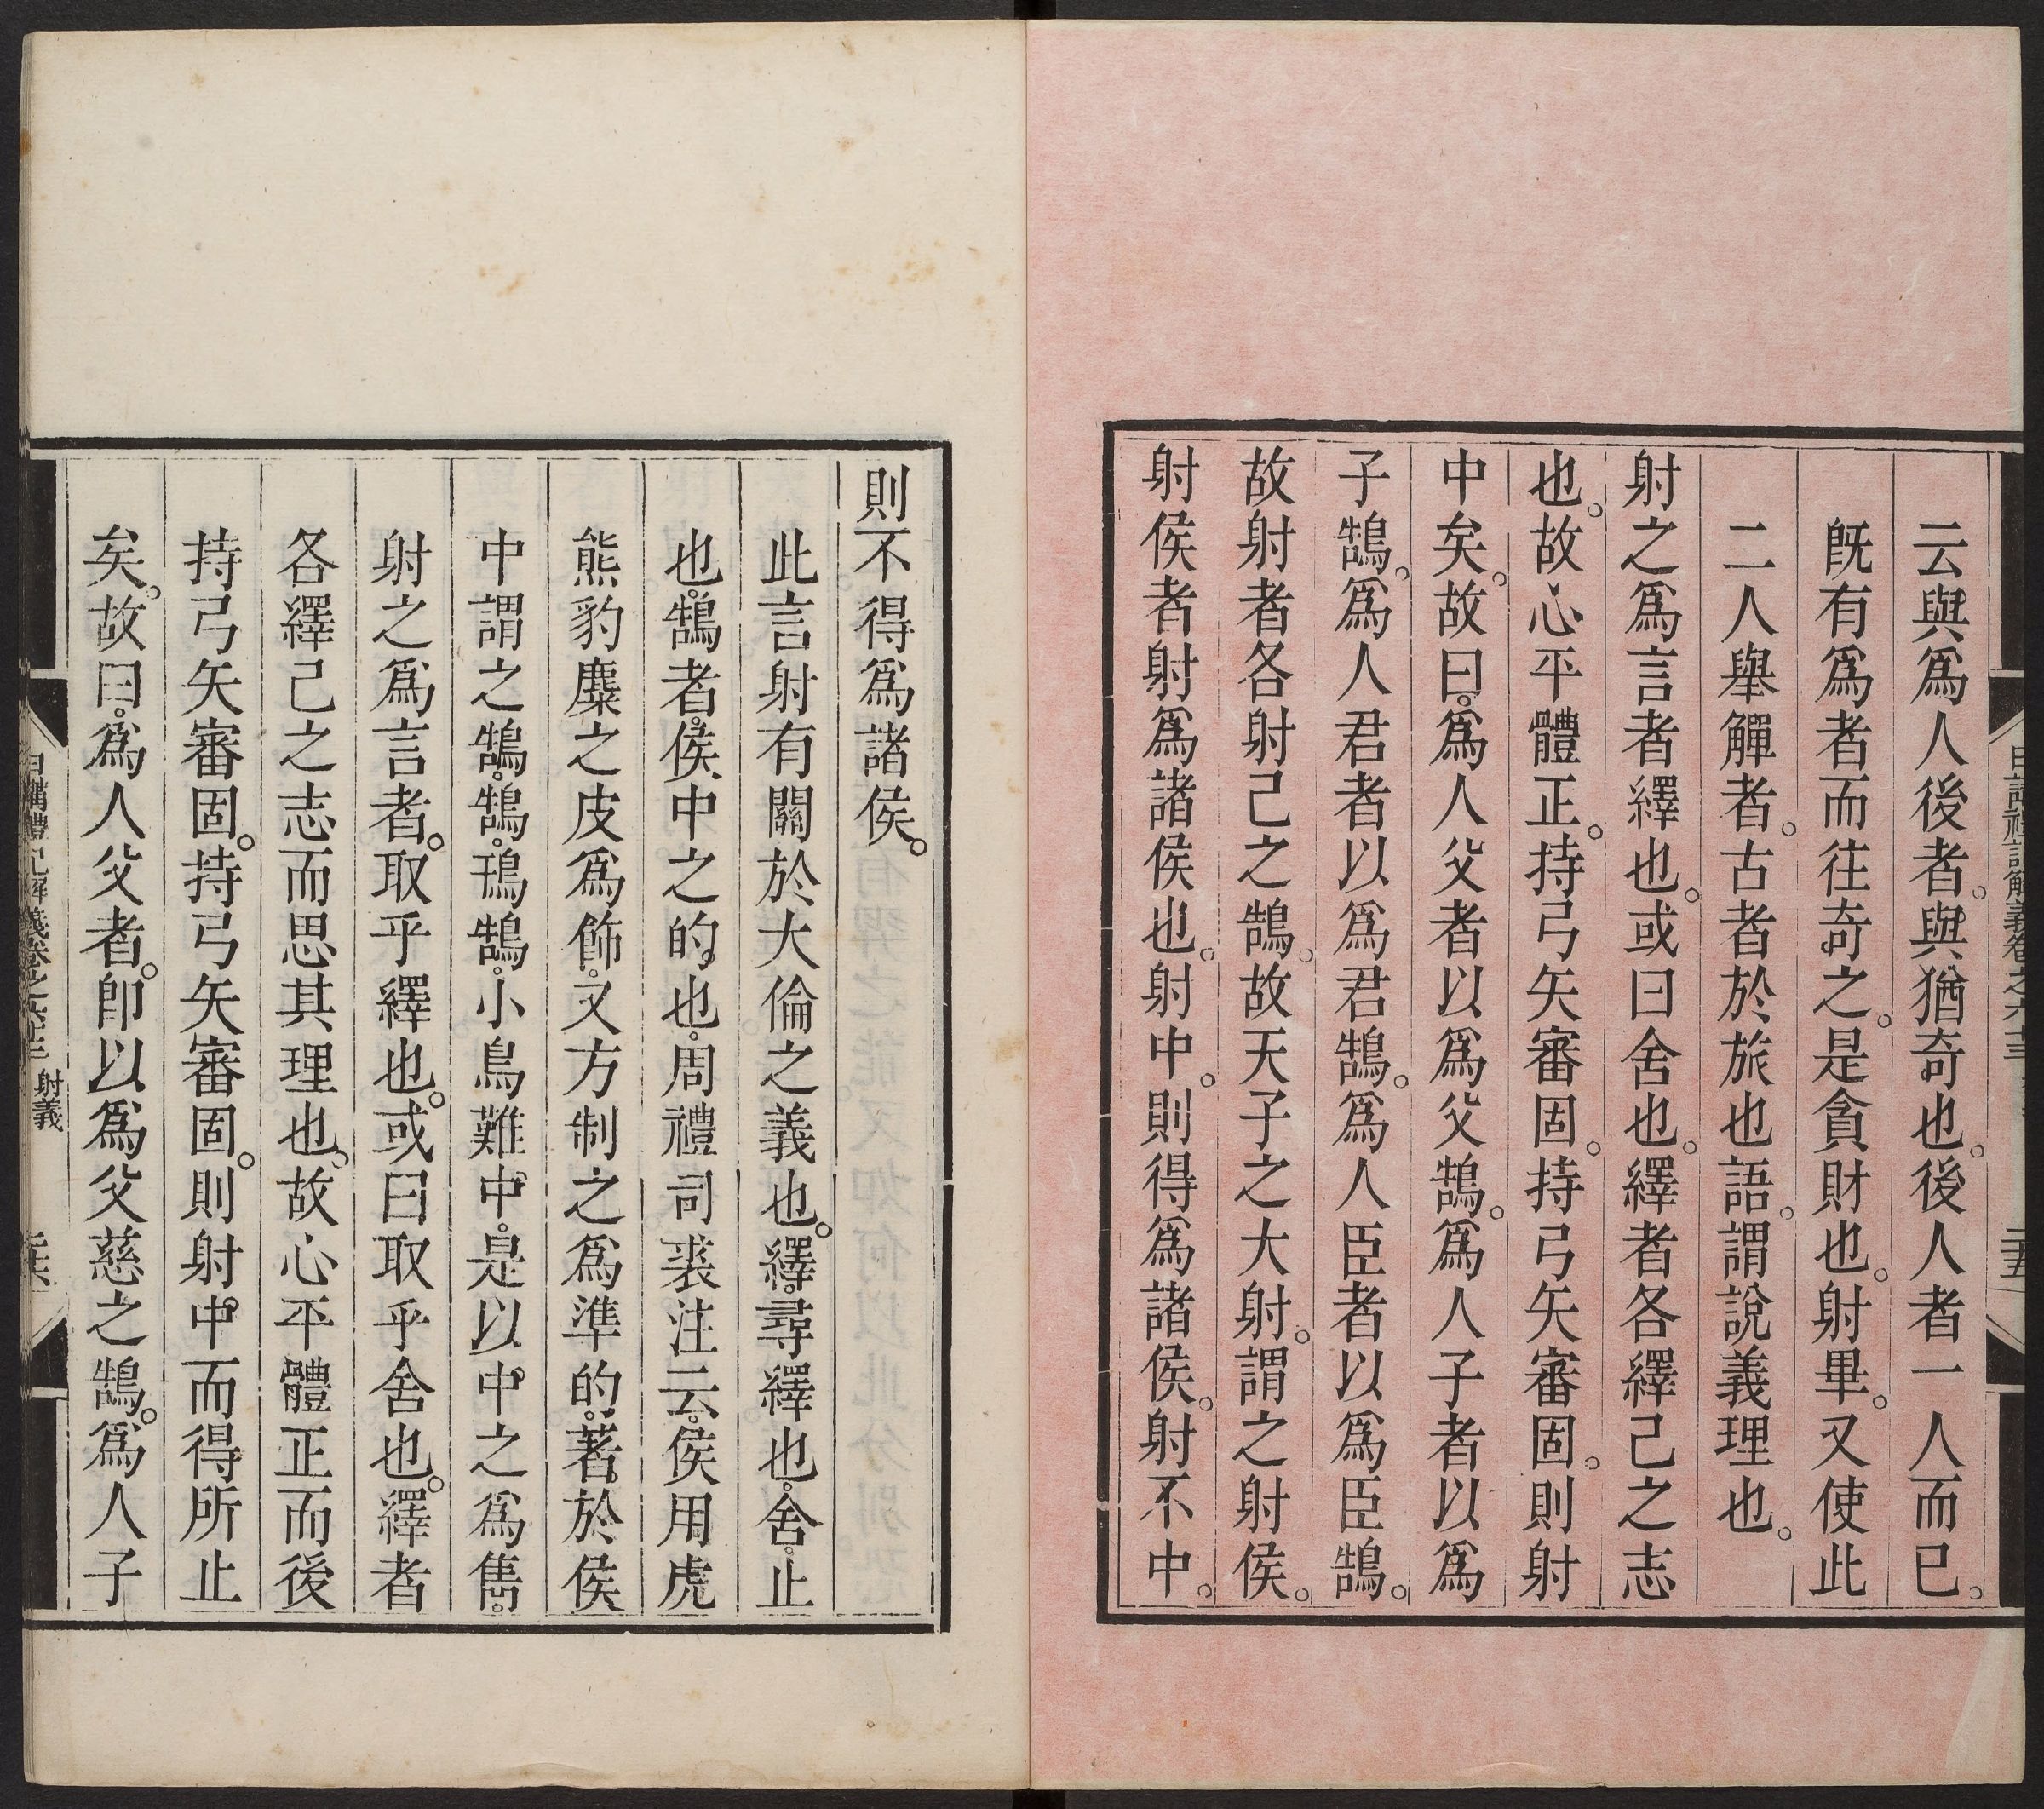 云與爲人後者。與猶奇也。後人者一人而已。
旣有爲者而往奇之。是貪財也。射畢。又使此
二人舉觶者。古者於旅也語。謂說義理也。
射之爲言者繹也。或曰舍也。繹者各繹己之志
也。故心平體正。持弓矢審固。持弓矢審固。則射
中矣。故曰。爲人父者以爲父鵠。爲人子者以爲
子鵠。爲人君者以爲君鵠。爲人臣者以爲臣鵠。
故射者各射己之鵠。故天子之大射。謂之射侯。
射侯者射爲諸侯也。射中。則得爲諸侯。射不中。
則不得爲諸侯。
此言射有關於大倫之義也。繹。尋繹也。舍。止
也。鵠者。侯中之的也。周禮司裘注云。侯用虎
熊豹麋之皮爲飾。又方制之爲準的。著於侯
中謂之鵠。鵠。鳱鵠。小鳥難中。是以中之爲雋。
射之爲言者。取乎繹也。或曰取乎舍也。繹者
各繹己之志而思其理也。故心平體正而後
持弓矢審固。持弓矢審固。則射中而得所止
矣。故曰。爲人父者。卽以爲父慈之鵠。爲人子
日講禮記解義卷之六十三 射義
二十六